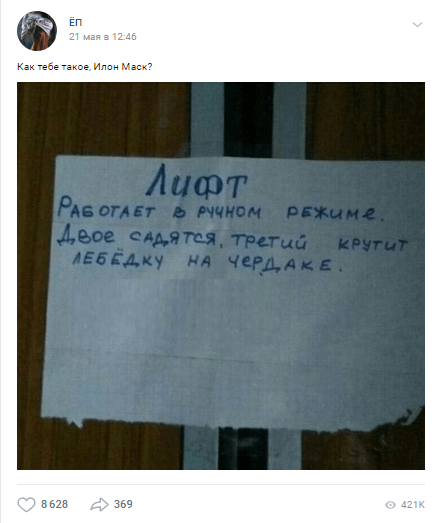 ЁП
21 мая в 12:46
Как тебе такое, Илон Маск?
Лифт
РАБОТАЕТ В РУЧНОМ РЕЖИМЕ.
ДВОЕ САДЯТСЯ, ТРЕТИЙ КРУТИТ
ЛЕБЁДКУ НА ЧЕРДАКЕ.
8 628 369 421K